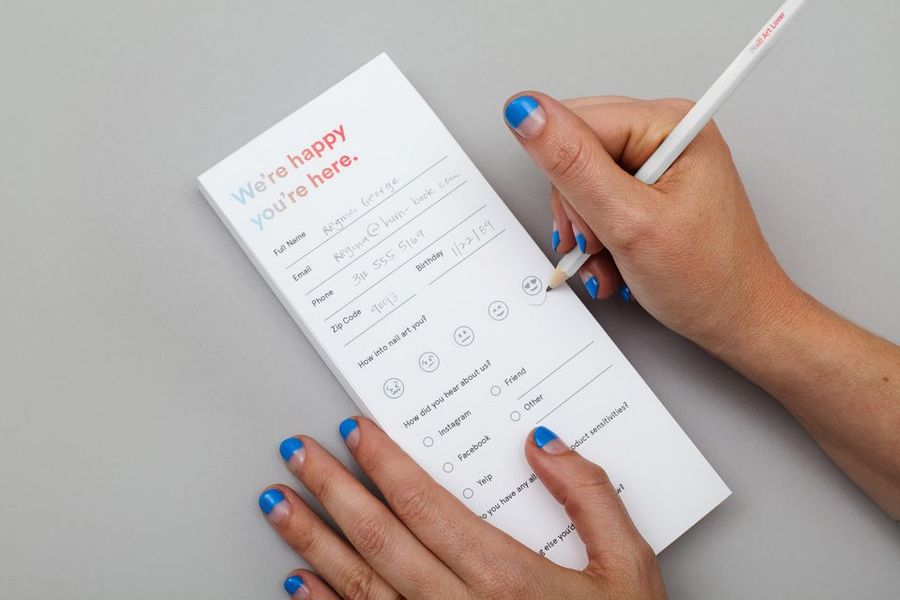 We're happy
you're here.
Full Name Regina George
Email Regina@burn-book.com
Phone 310 555 5169
Zip Code 90013 Birthday 1/22/89
How into nail art you?
How did you hear about us?
Instagram Friend
Facebook Other
Yelp
Do you have any all product sensitivities?
g else you'd w?
(Nail) Art Lover